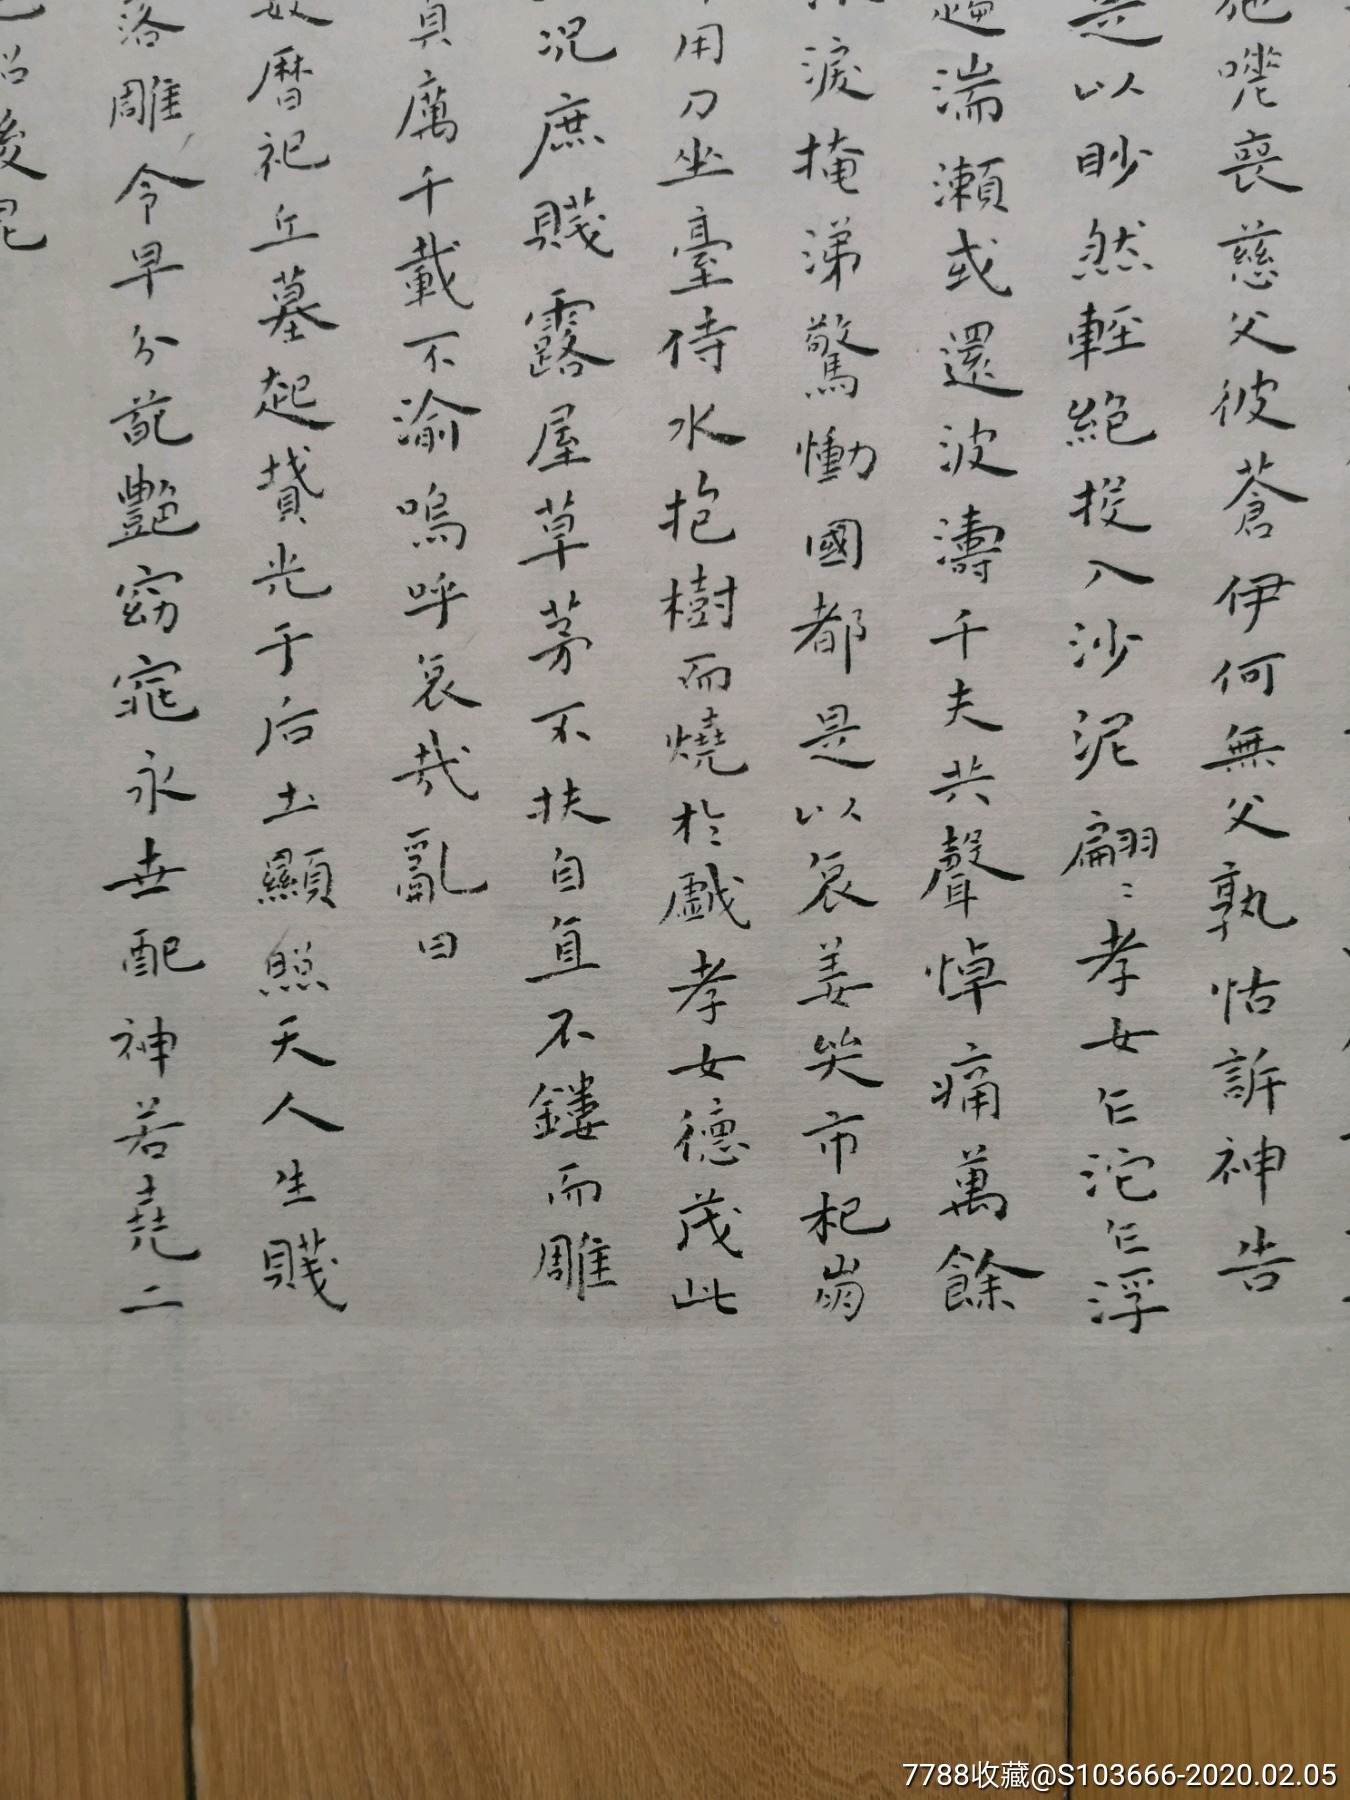 喪慈父彼蒼伊何無父孰怙訴神告
是以眇然輕絕投入沙泥翩〻孝女乍沉乍浮
湍瀨或還波濤千夫共聲悼痛萬餘
淚掩涕驚慟國都是以哀姜哭市杞崩
用刀坐臺待水抱樹而燒於戲孝女德茂此
況庶賤露屋草茅不扶自直不鏤而雕
貞厲千載不渝嗚呼哀哉亂曰
曆祀丘墓起墳光于后土顯照天人生賤
落雕令早分葩艷窈窕永世配神若堯二
後昆
7788收藏@S103666-2020.02.05